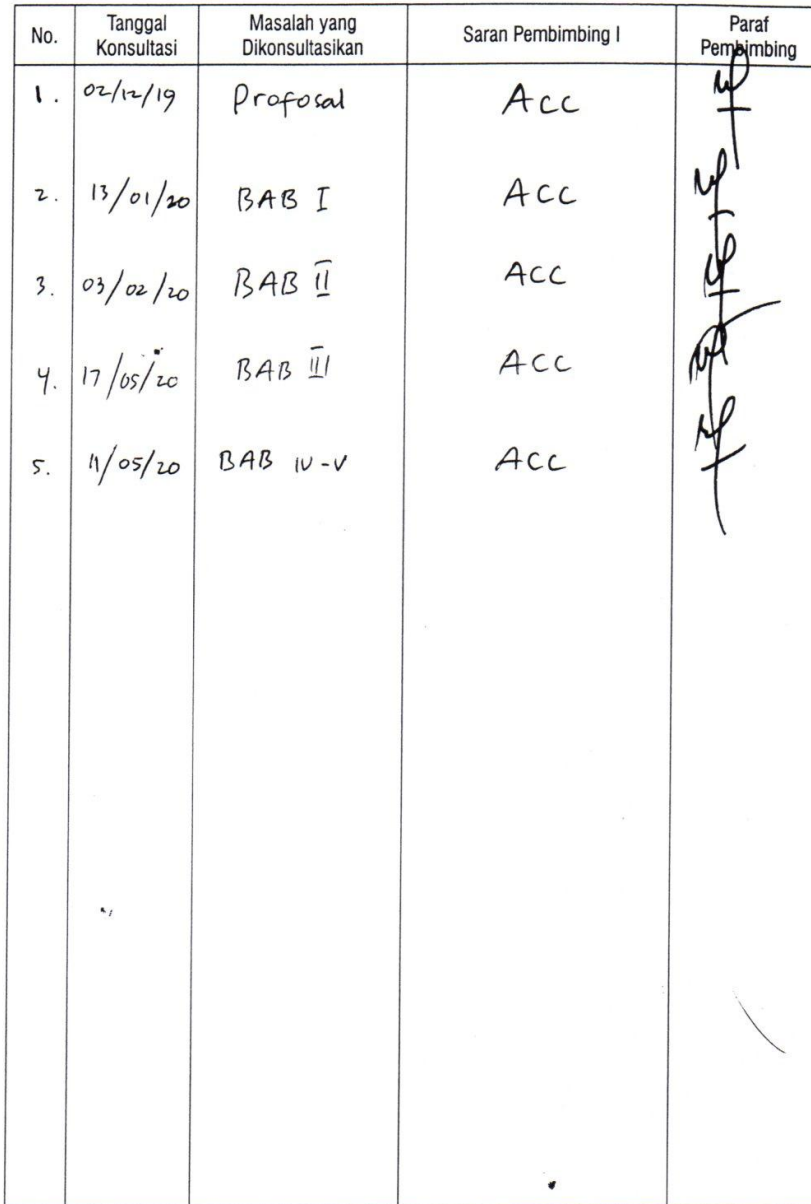 No. Tanggal Konsultasi Masalah yang Dikonsultasikan Saran Pembimbing I Paraf Pembimbing
1. 02/12/19 Profosal Acc
2. 13/01/20 BAB I Acc
3. 03/02/20 BAB II Acc
4. 17/05/20 BAB III Acc
5. 11/05/20 BAB IV-V Acc